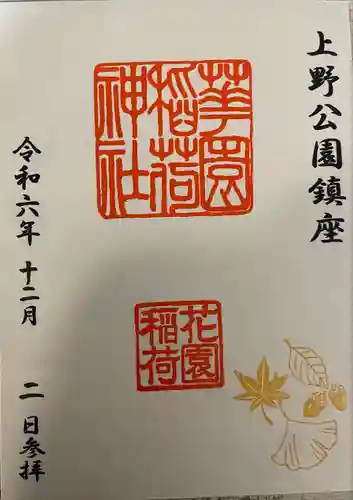 上野公園鎮座
華園
稲荷
神社
花園
稲荷
令和六年 十二月 二日参拝